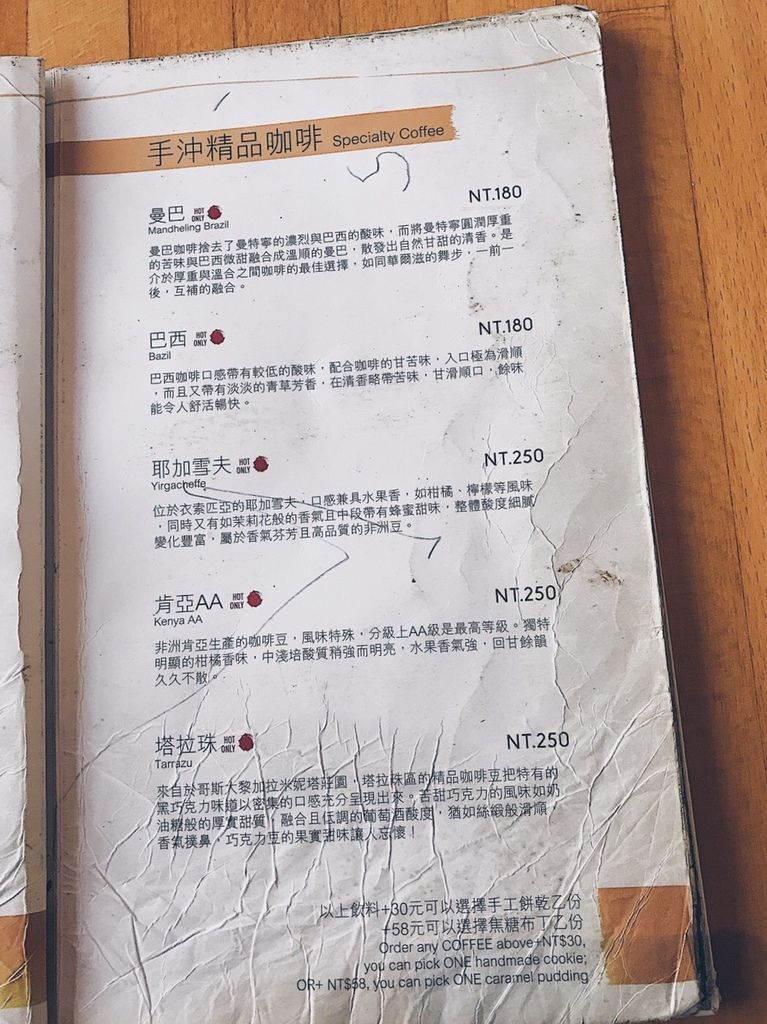 手沖精品咖啡 Specialty Coffee
曼巴 HOT ONLY NT.180
Mandheling Brazil
曼巴咖啡捨去了曼特寧的濃烈與巴西的酸味，而將曼特寧圓潤厚重
的苦味與巴西微甜融合成溫順的曼巴，散發出自然甘甜的清香。是
介於厚重與溫合之間咖啡的最佳選擇，如同華爾滋的舞步，一前一
後，互補的融合。
巴西 HOT ONLY NT.180
Bazil
巴西咖啡口感帶有較低的酸味，配合咖啡的甘苦味，入口極為滑順
，而且又帶有淡淡的青草芳香，在清香略帶苦味，甘滑順口，餘味
能令人舒活暢快。
耶加雪夫 HOT ONLY NT.250
Yirgacheffe
位於衣索匹亞的耶加雪夫，口感兼具水果香，如柑橘、檸檬等風味
，同時又有如茉莉花般的香氣且中段帶有蜂蜜甜味，整體酸度細膩
變化豐富，屬於香氣芬芳且高品質的非洲豆。
肯亞AA HOT ONLY NT.250
Kenya AA
非洲肯亞生產的咖啡豆，風味特殊，分級上AA級是最高等級。獨特
明顯的柑橘香味，中淺培酸質稍強而明亮，水果香氣強，回甘餘韻
久久不散。
塔拉珠 HOT ONLY NT.250
Tarrazu
來自於哥斯大黎加拉米妮塔莊園，塔拉珠區的精品咖啡豆把特有的
黑巧克力味道以密集的口感充分呈現出來。苦甜巧克力的風味如奶
油糖般的厚實甜質，融合且低調的葡萄酒酸度，猶如絲緞般滑順，
香氣撲鼻，巧克力豆的果實甜味讓人忘懷！
以上飲料+30元可以選擇手工餅乾乙份
+58元可以選擇焦糖布丁乙份
Order any COFFEE above+NT$30,
you can pick ONE handmade cookie;
OR+ NT$58, you can pick ONE caramel pudding